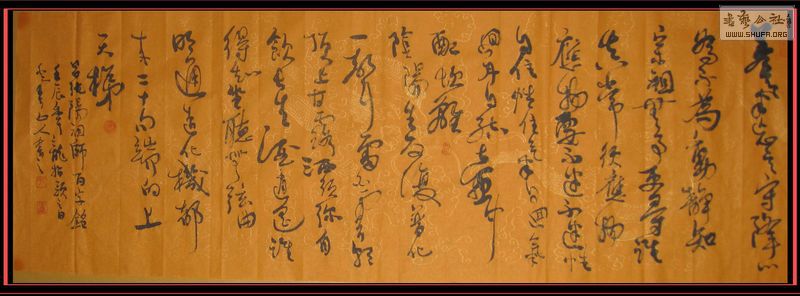 書藝公社
WWW.SHUFA.ORG
養氣忘言守降心
為不為動靜知
宗祖無事更尋誰
真常須應物
應物要不迷不迷性
自住性住氣自回氣
回丹自結壺中
配坎離
陰陽生反復普化
一聲雷白雲朝
頂上甘露洒須弥自
飲長生酒逍遙誰
得知坐聽無弦曲
明通造化機都
来二十句端的上
天梯
呂純陽祖師百字銘
壬辰年龍抬頭之日
山人書